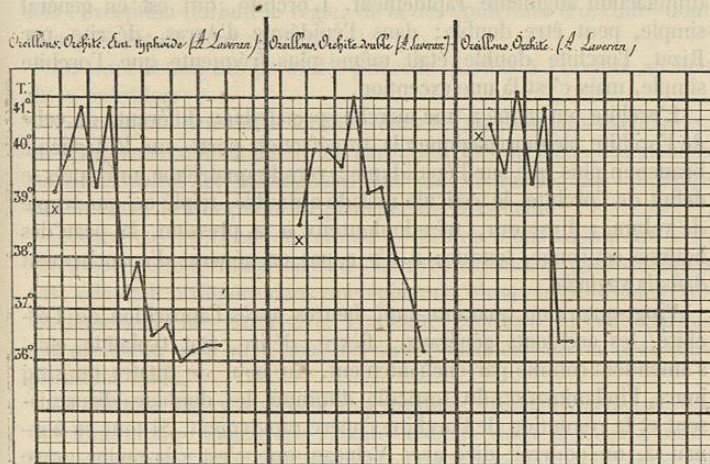 Oreillons. Orchite. Etat typhoïde (A. Laveran) Oreillons, Orchite double (A. Laveran) Oreillons, Orchite. (A. Laveran)
T.
41°
40°
39°
38°
37°
36°
x
x
x